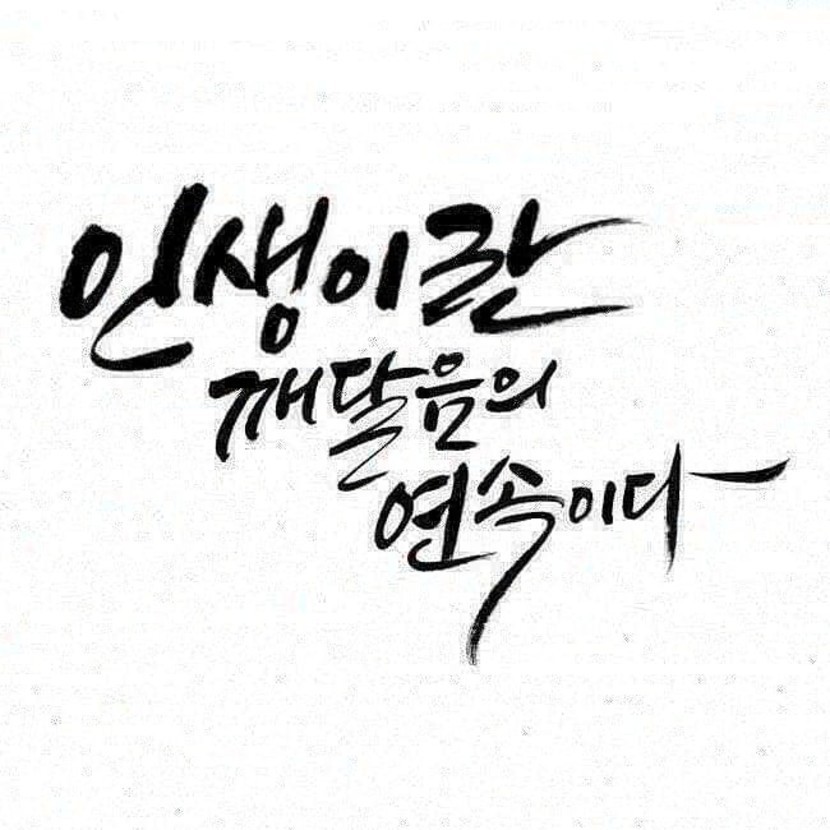 인생이란
깨달음의
연속이다